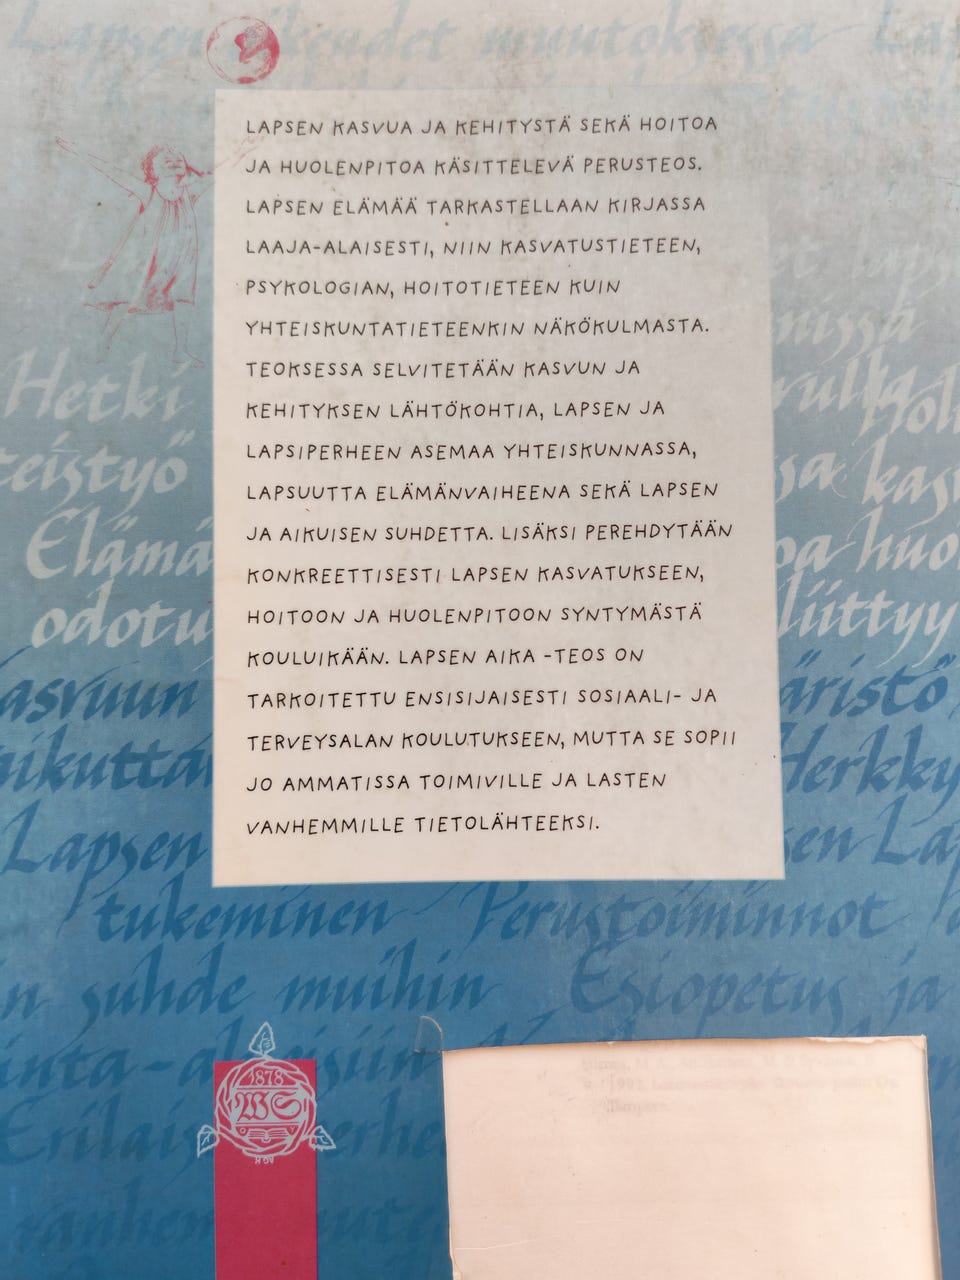 Lapsen oikeudet muutoksessa
LAPSEN KASVUA JA KEHITYSTÄ SEKÄ HOITOA
JA HUOLENPITOA KÄSITTELEVÄ PERUSTEOS.
LAPSEN ELÄMÄÄ TARKASTELLAAN KIRJASSA
LAAJA-ALAISESTI, NIIN KASVATUSTIETEEN,
PSYKOLOGIAN, HOITOTIETEEN KUIN
YHTEISKUNTATIETEENKIN NÄKÖKULMASTA.
TEOKSESSA SELVITETÄÄN KASVUN JA
KEHITYKSEN LÄHTÖKOHTIA, LAPSEN JA
LAPSIPERHEEN ASEMAA YHTEISKUNNASSA,
LAPSUUTTA ELÄMÄNVAIHEENA SEKÄ LAPSEN
JA AIKUISEN SUHDETTA. LISÄKSI PEREHDYTÄÄN
KONKREETTISESTI LAPSEN KASVATUKSEEN,
HOITOON JA HUOLENPITOON SYNTYMÄSTÄ
KOULUIKÄÄN. LAPSEN AIKA -TEOS ON
TARKOITETTU ENSISIJAISESTI SOSIAALI- JA
TERVEYSALAN KOULUTUKSEEN, MUTTA SE SOPII
JO AMMATISSA TOIMIVILLE JA LASTEN
VANHEMMILLE TIETOLÄHTEEKSI.
Hetki
teistyö
Elämä
odotu
liittyy
asvuun
äristö
aikuttav
Herkky
Lapsen
tukeminen Perustoiminnot
n suhde muihin Esiopetus ja
1878
WS